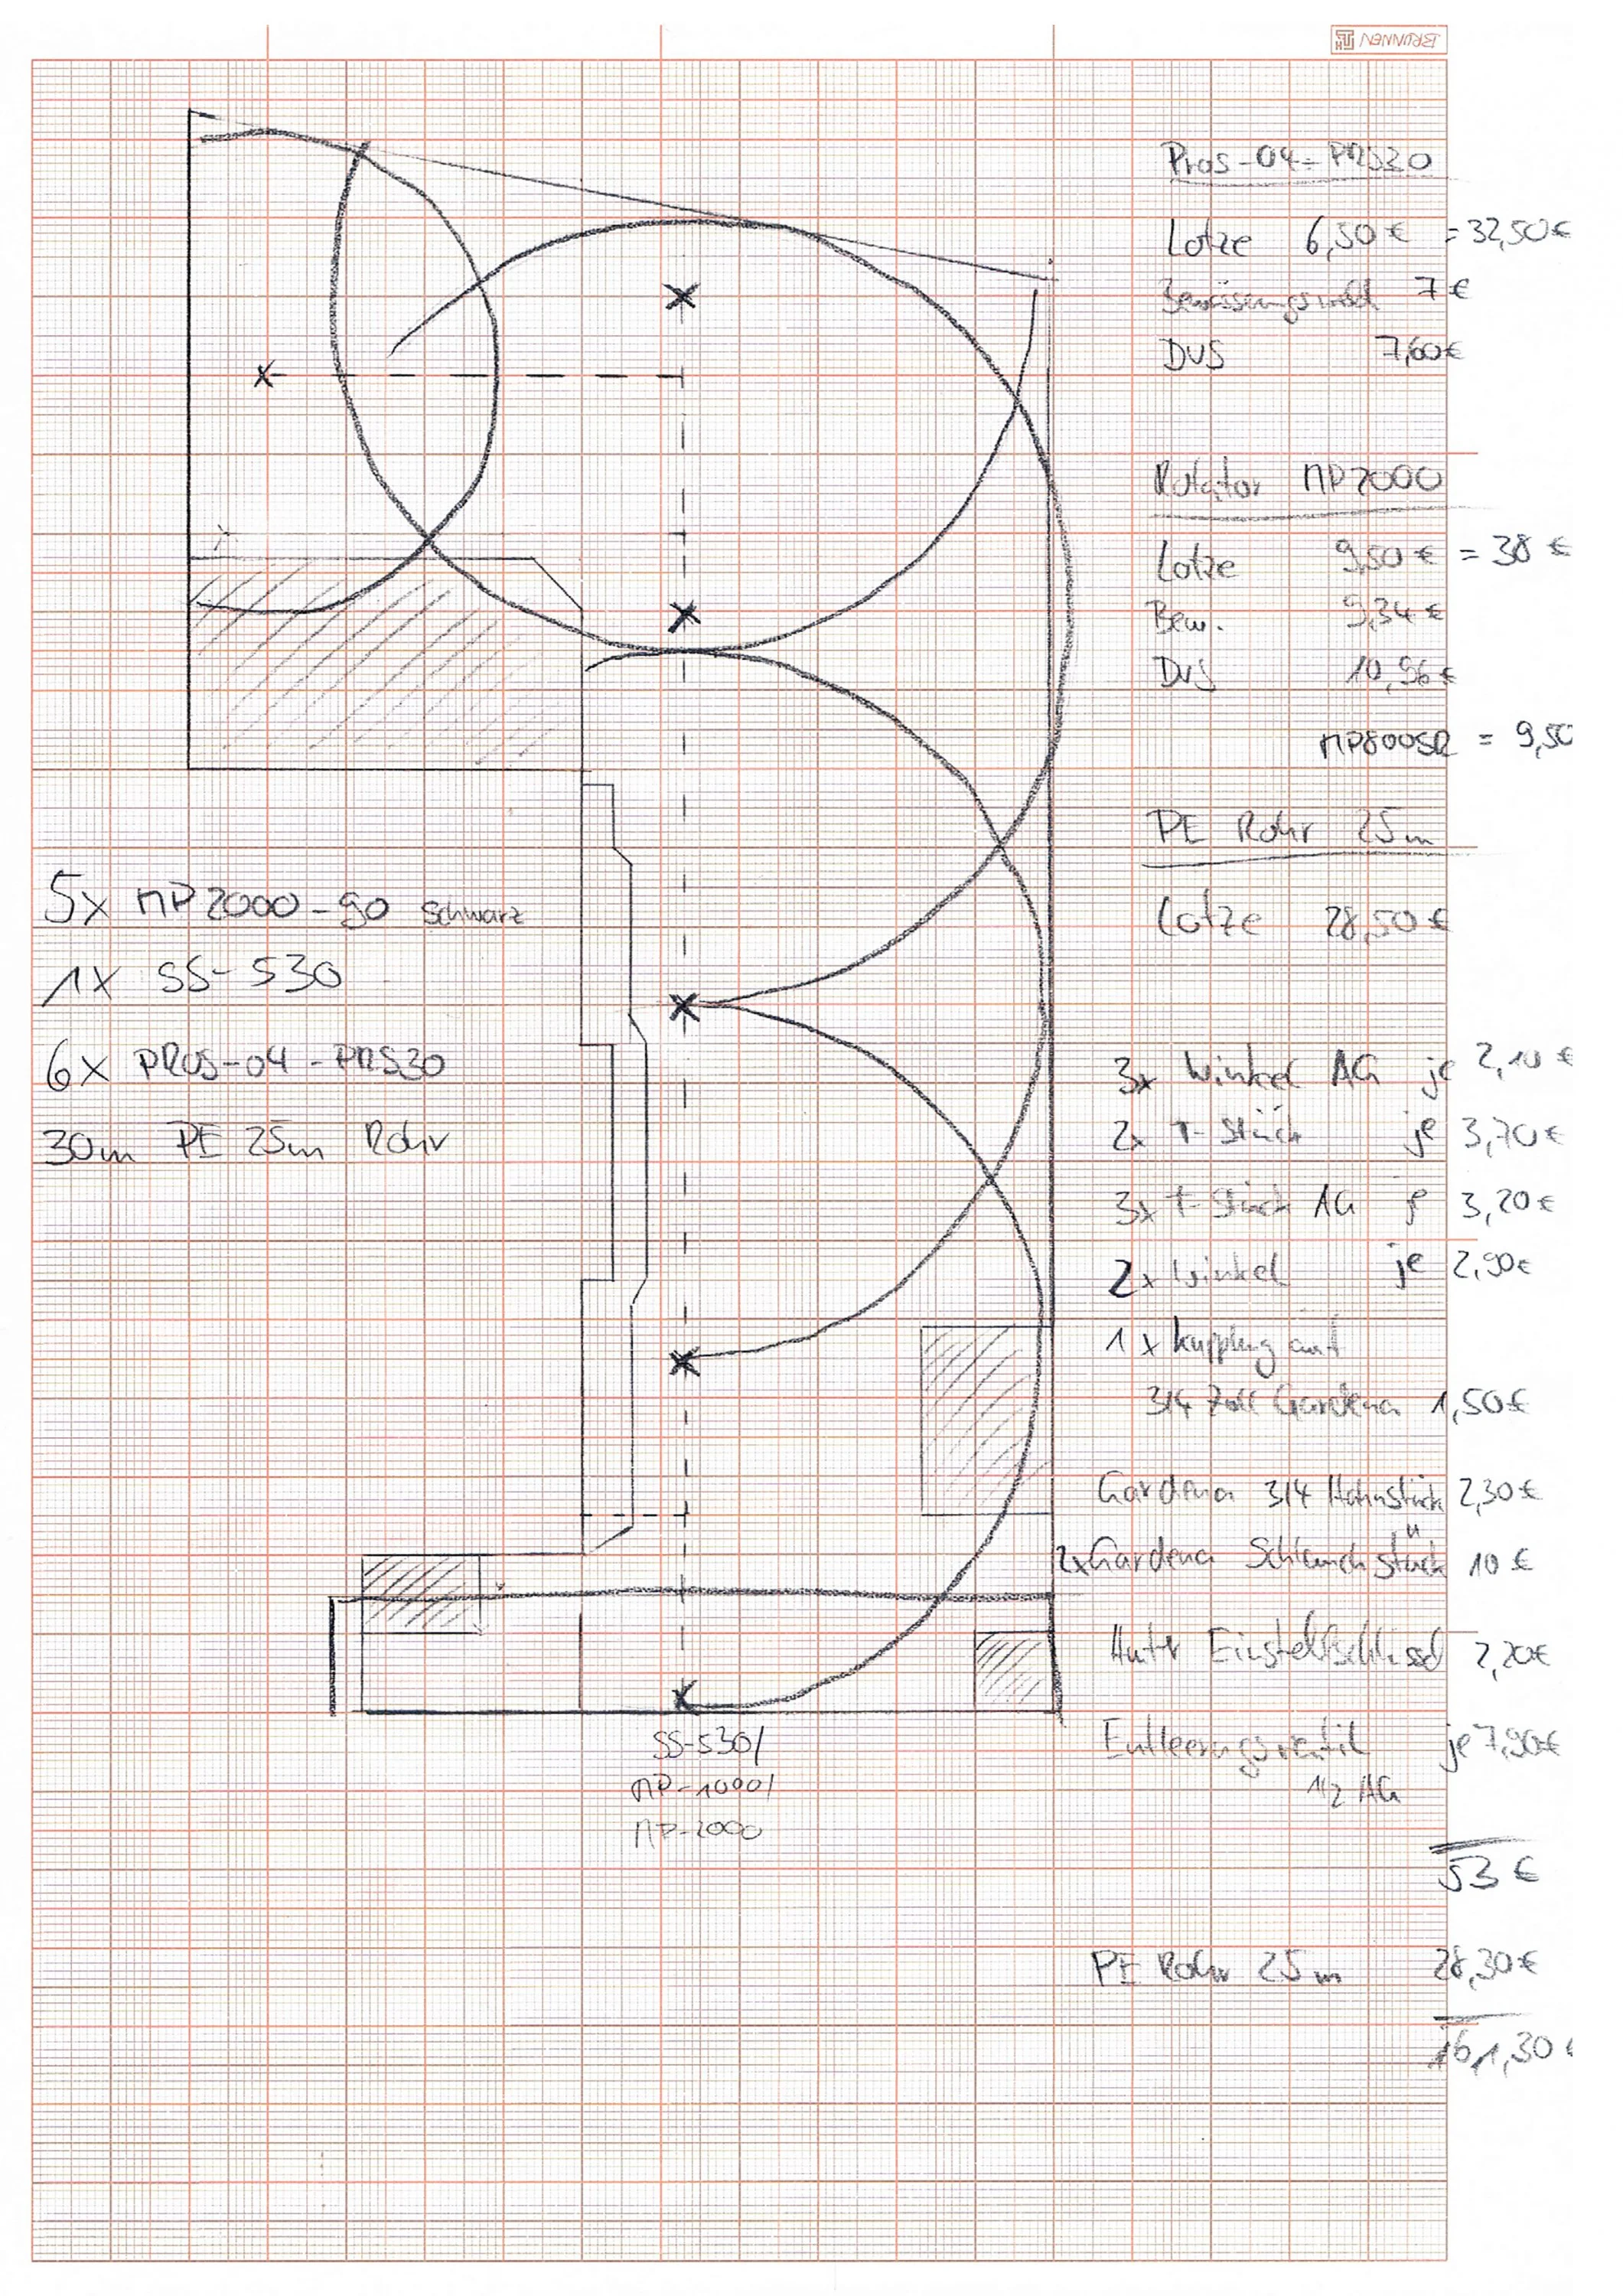 BRUNNEN
Pros-04-PRS30
Lotze 6,50€ = 32,50€
7€
DVS 7,60€
Rotator MP2000
Lotze 9,50€ = 38€
Bew. 9,34€
DVS 10,96€
MP800SR = 9,50
PE Rohr 25m
Lotze 28,50€
5x MP2000-90 schwarz
1x SS-530
6x PROS-04-PRS30
30m PE 25m Rohr
3x Winkel AG je 2,10€
2x T-Stück je 3,70€
3x T-Stück AG je 3,20€
2x Winkel je 2,90€
1x Kupplung auf
3/4 Zoll Gardena 1,50€
Gardena 3/4 Hahnstück 2,30€
2x Gardena Schlauchstück 10€
Hunter Einstellschlüssel 2,20€
Entleerungsventil je 7,90€
1/2 AG
SS-530/
MP-1000/
MP-2000
53€
PE Rohr 25m 28,30€
161,30€